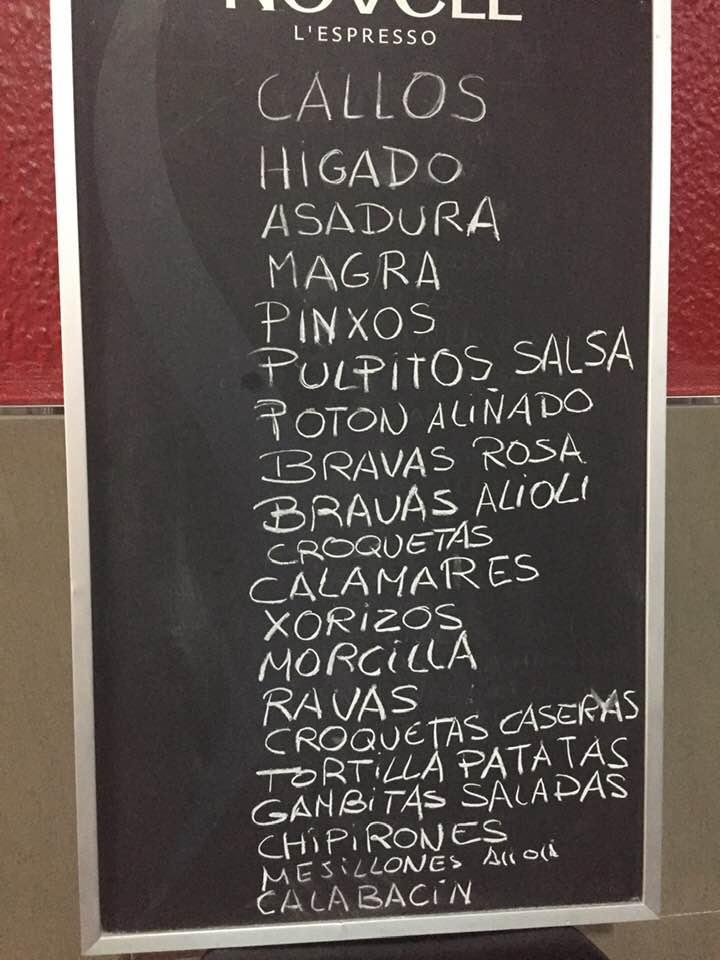 NOVELL
L'ESPRESSO
CALLOS
HIGADO
ASADURA
MAGRA
PINXOS
PULPITOS SALSA
POTON ALIÑADO
BRAVAS ROSA
BRAVAS ALIOLI
CROQUETAS
CALAMARES
XORIZOS
MORCILLA
RAVAS
CROQUETAS CASERAS
TORTILLA PATATAS
GAMBITAS SALADAS
CHIPIRONES
MESILLONES ALIOLI
CALABACIN